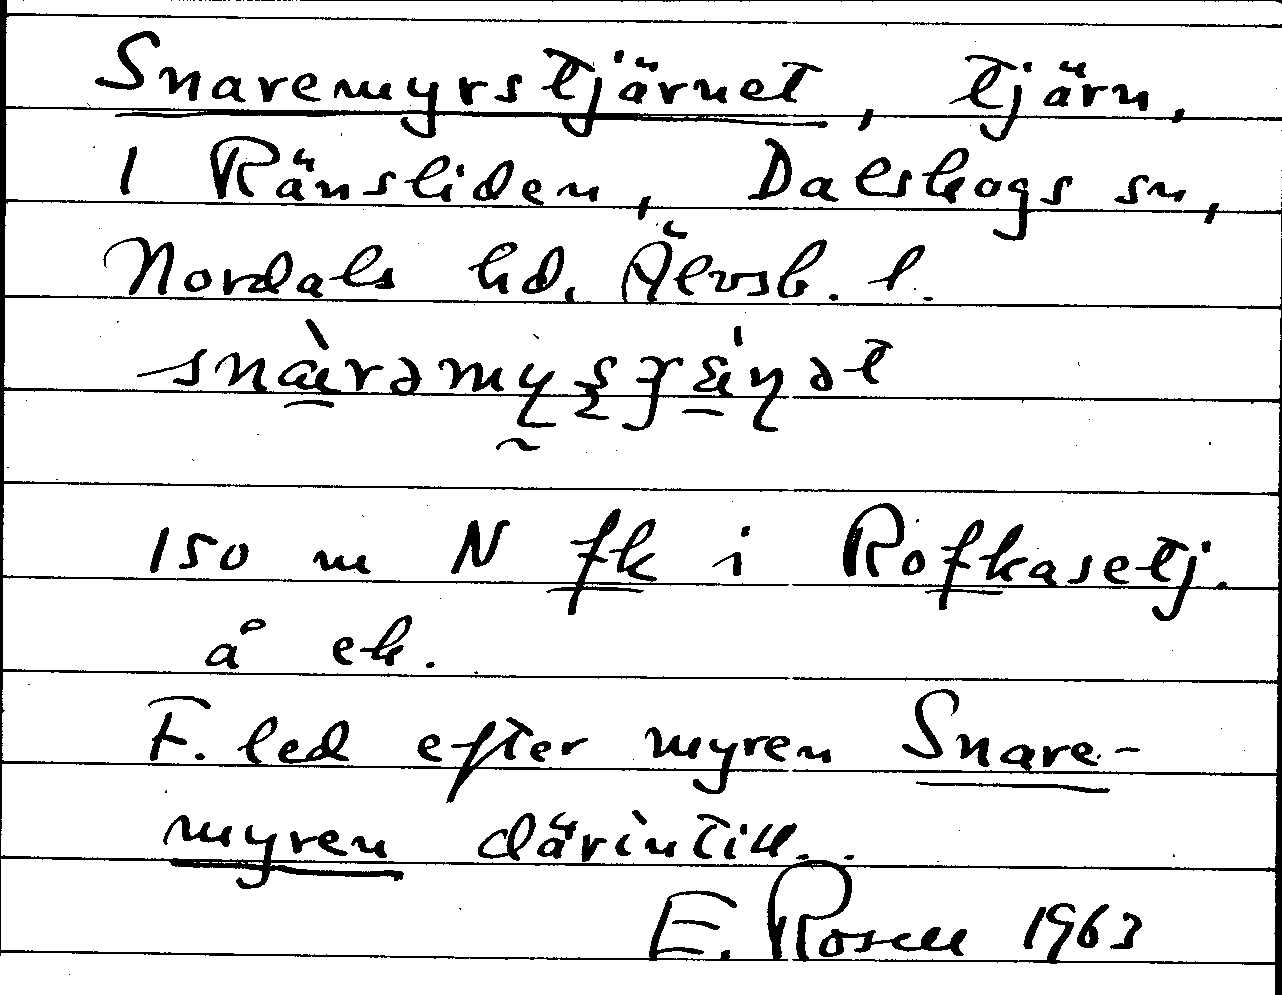 Snaremyrstjärnet, tjärn,
I Ränsliden, Dalskogs sn,
Nordals hd. Älvsb. l.
150 m N fk i Rofkasetj.
å ek.
F. led efter myren Snare-
myren därintill.
E. Rosell 1963